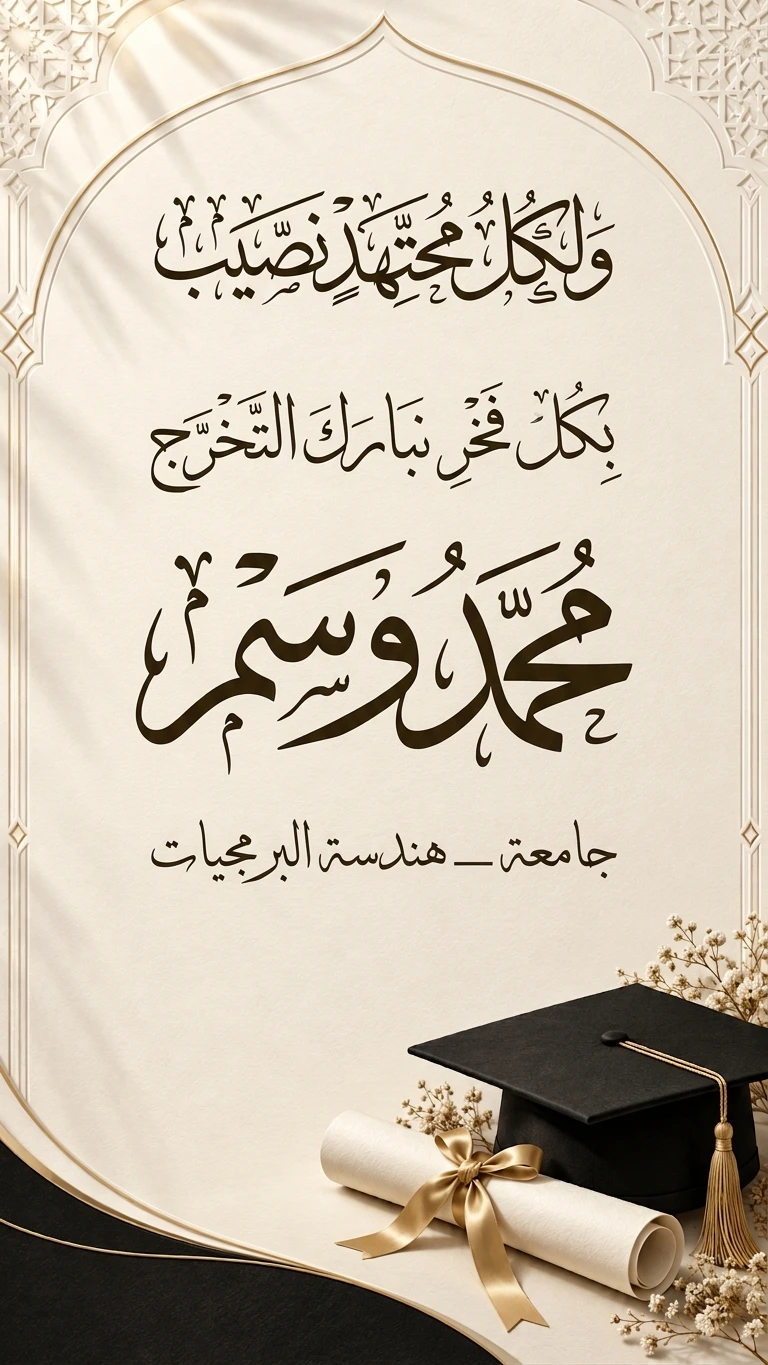 وَلِكُلِّ مُجْتَهِدٍ نَصِيب
بِكُلّ فَخْرٍ نبَارَكَ التَّخَرَّج
مُحَمَّدُ وَسَم
جامعة _ هندسة البرمجيات